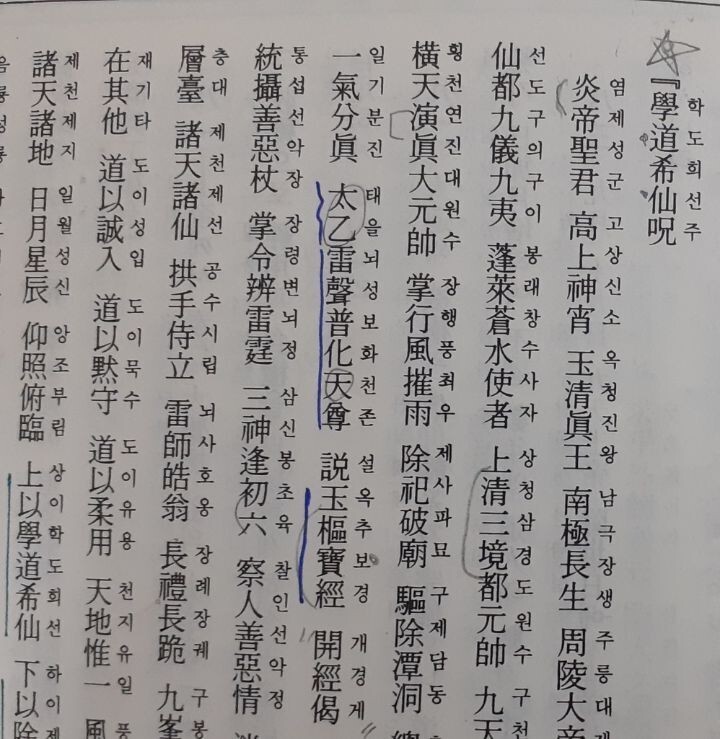 『學道希仙呪
학도희선주
炎帝聖君 高上神宵 玉清眞王 南極長生 周陵大
염제성군 고상신소 옥청진왕 남극장생 주릉대
仙都九儀九夷 蓬萊蒼水使者 上清三境都元帥 九天
선도구의구이 봉래창수사자 상청삼경도원수 구천
橫天演眞大元帥 掌行風摧雨 除祀破廟 驅除潭洞
횡천연진대원수 장행풍최우 제사파묘 구제담동
一氣分眞 太乙雷聲普化天尊 説玉樞寶經 開經偈
일기분진 태을뇌성보화천존 설옥추보경 개경게
統攝善惡杖 掌令辨雷霆 三神逢初六 察人善惡情
통섭선악장 장령변뇌정 삼신봉초육 찰인선악정
層臺 諸天諸仙 拱手侍立 雷師皓翁 長禮長跪 九峯
층대 제천제선 공수시립 뇌사호옹 장례장궤 구봉
在其他 道以誠入 道以默守 道以柔用 天地惟一 風
재기타 도이성입 도이묵수 도이유용 천지유일 풍
諸天諸地 日月星辰 仰照俯臨 上以學道希仙 下以除
제천제지 일월성신 앙조부림 상이학도희선 하이제